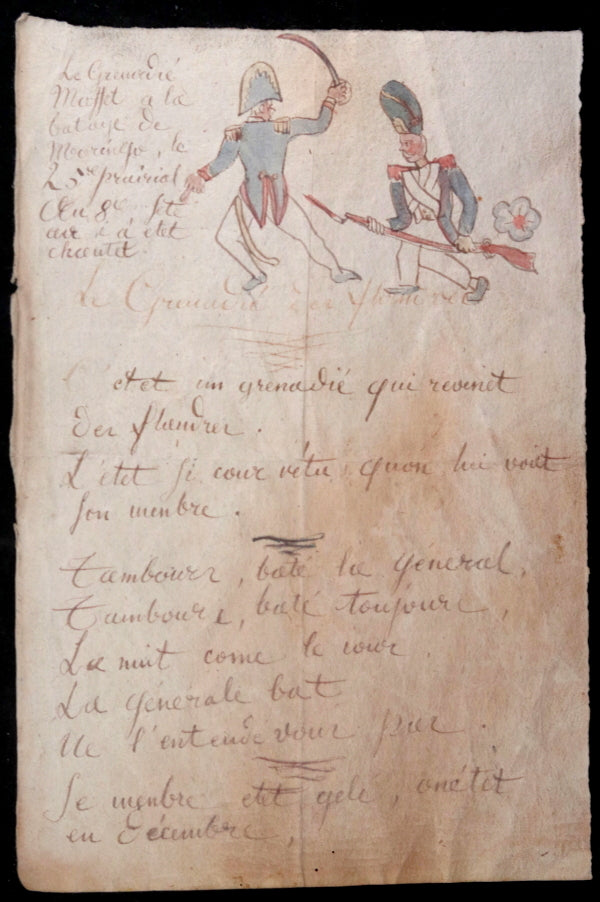 Le Grenadié
Maffet a la
bataye de
Maringo, le
25e prairial
An 8e. Sete
air a étét
chantét.
Le Grenadié des flandres
C étet un grenadié qui revenét
des flandres.
L'étet si cour vétu, quon lui voiét
son menbre.
Tambours, baté la général,
Tambours, baté toujours,
La nuit come le jour.
La générale bat
Ne l'entendé vous pas.
Se menbre étét gelé, onétét
en Décembre,